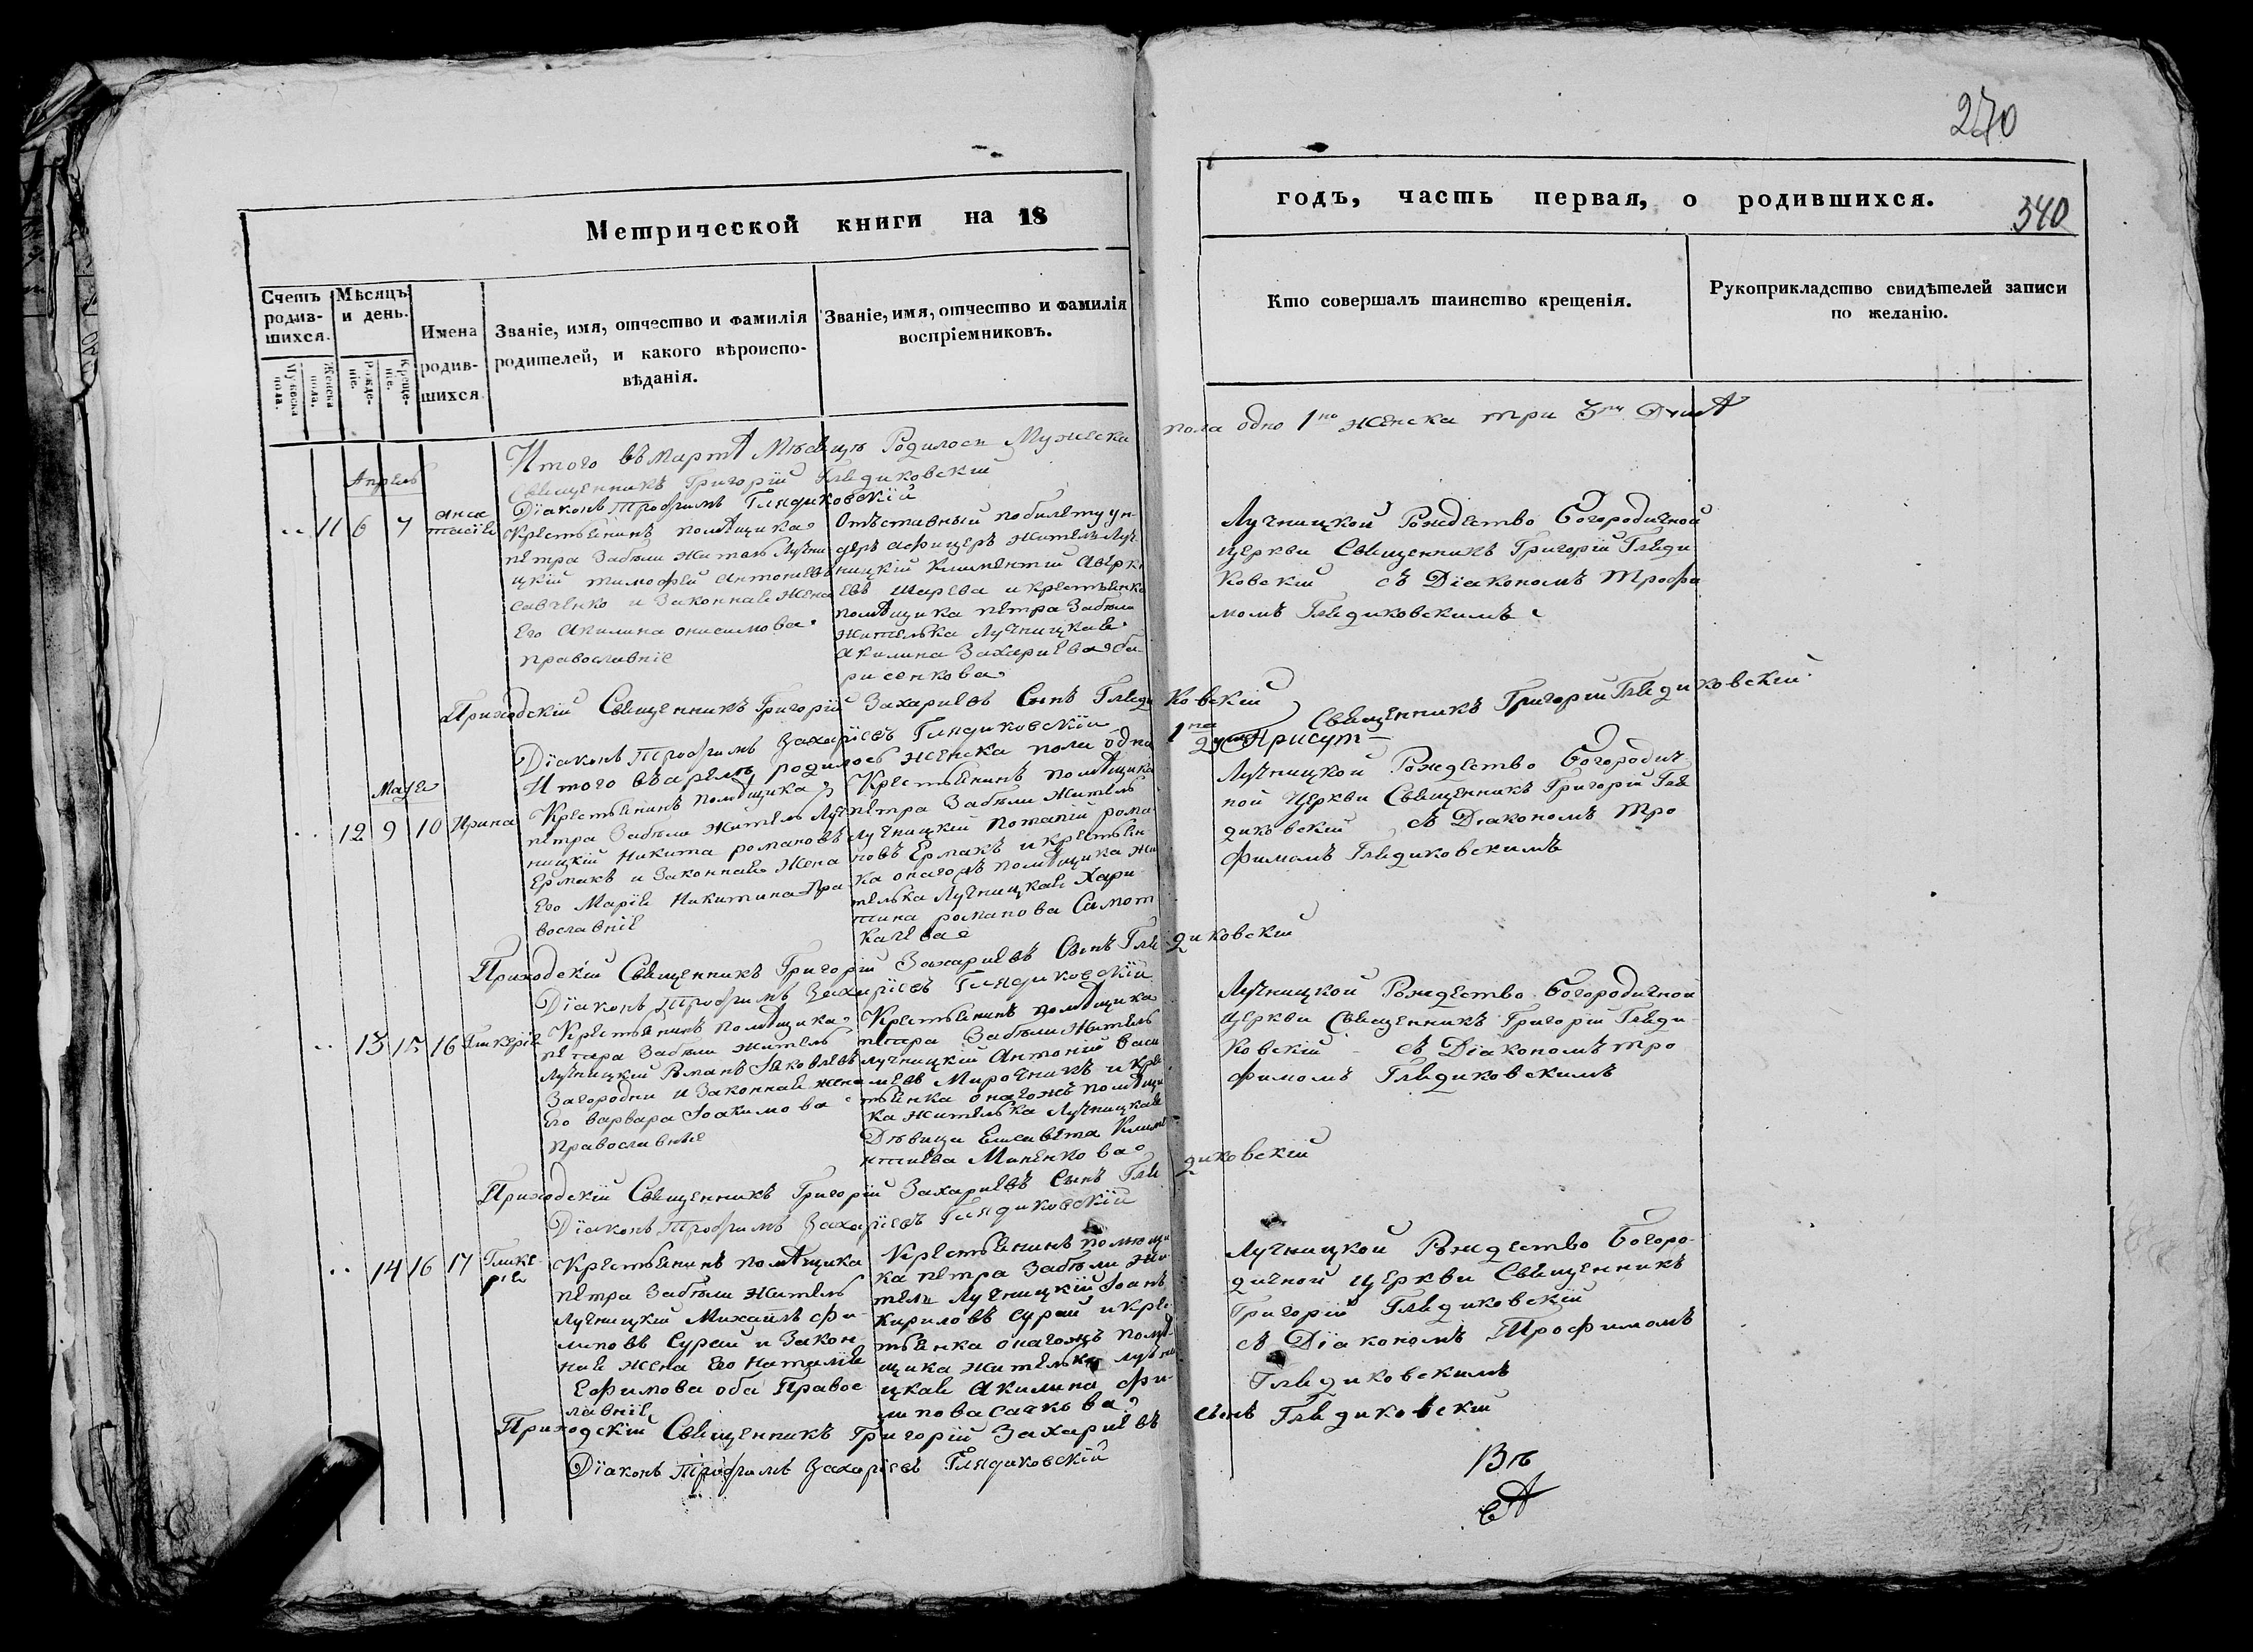 270
Метрической книги на 18
годъ, часть первая, о родившихся.
340
Счетъ родив-шихся.
Мѣсяцъ и день.
Имена родив-шихся
Званіе, имя, отчество и фамилія родителей, и какого вѣроиспо-вѣданія.
Званіе, имя, отчество и фамилія воспріемниковъ.
Кто совершалъ таинство крещенія.
Рукоприкладство свидѣтелей записи по желанію.
Мужеска пола.
Женска пола.
Рожде-ніе.
Креще-ніе.
Итого въ мартѣ Мѣсяцѣ Родилось Мужеска пола одно 1 женска три
Священникъ Григорій Глядиковскій
Діаконъ Трофимъ Глядиковскій
Апрель
11 6 7
Анас
тасія
Крестьянинъ помѣщика
петра Забѣли житель Лучни
цкій тимофей антоніевъ
савченко и Законная жена
Его Акилина онисимова
православніе
Отъставный по билету ун
деръ афицеръ житель Луч
ницкій климентій Аверкі
евъ Шарева и крестьянка
помѣщика петра Забели
жителька Лучницкая
Акилина Захаріева бо
рисенкова
Лучницкой Рождество Богородичной
Церкви Священникъ Григорій Гляди
ковскій съ Діакономъ Трофи
момъ Глядиковскимъ
Приходскій Священникъ Григорій Захаріевъ Сынъ Глядиковскій
Діаконъ Трофимъ Захаріевъ Глядиковскій
Священникъ Григорій Глядиковскій
Итого въ апрелѣ родилось женска пола одна
Маія
12 9 10 Ирина
Крестьянинъ помѣщика
петра Забѣли житель Луч
ницкій Никита романовъ
Ермакъ и Законная жена
Его Марія Никитина Пра
вославніе
Крестьянинъ помѣщика
петра Забѣли житель
Лучницкій Потапій рома
новъ Ермакъ и крестьян
ка онагожъ помѣщика жи
телька Лучницкая Хари
тина романова Самот
каева
Лучницкой Рождество Богородич
ной Церкви Священникъ Григорій Гля
диковскій съ Діакономъ Тро
фимомъ Глядиковскимъ
Приходскій Священникъ Григорій Захаріевъ Сынъ Глядиковскій
Діаконъ Трофимъ Захаріевъ Глядиковскій
13 15 16 Гликерія
Крестьянинъ помѣщика
петра Забѣли житель
Лучницкій Романъ Яковлевъ
Загородни и Законная жена
Его варвара Іоакимова
Православніе
Крестьянинъ помѣщика
петра Забѣли житель
лучницкій Антоній васи
левъ Мирочникъ и крес
тьянка онагожъ помѣщи
ка жителька Лучницкая
Дѣвица Елисавета Климе
нтіева Миненкова
Лучницкой Рождество Богородичной
Церкви Священникъ Григорій Гляди
ковскій съ Діакономъ тро
фимомъ Глядиковскимъ
Приходскій Священникъ Григорій Захаріевъ Сынъ Глядиковскій
Діаконъ Трофимъ Захаріевъ Глядиковскій
14 16 17
Глике
рія
Крестьянинъ помѣщика
петра Забѣли житель
Лучницкій Михаилъ фи
липовъ Сурай и Закон
ная жена Его Наталія
Ефимова оба Правос
лавніе
Крестьянинъ помѣщи
ка петра Забѣли жи
тель Лучницкій Іоанъ
Кириловъ Сурай и крес
тьянка онагожъ помѣ
щика жителька лучни
цкая Акилина фи
липова сачкова
Лучницкой Рождество Богоро
дичной Церкви Священникъ
Григорій Глядиковскій
съ Діакономъ Трофимомъ
Глядиковскимъ
Приходскій Священникъ Григорій Захаріевъ сынъ Глядиковскій
Діаконъ Трофимъ Захаріевъ Глядиковскій